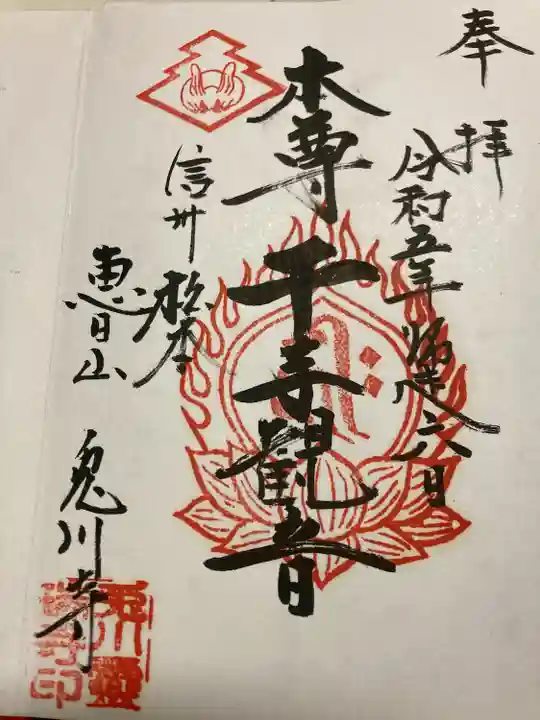 奉拝
令和五年師走六日
本尊
千手觀音
信州
松本
恵日山
兎川寺